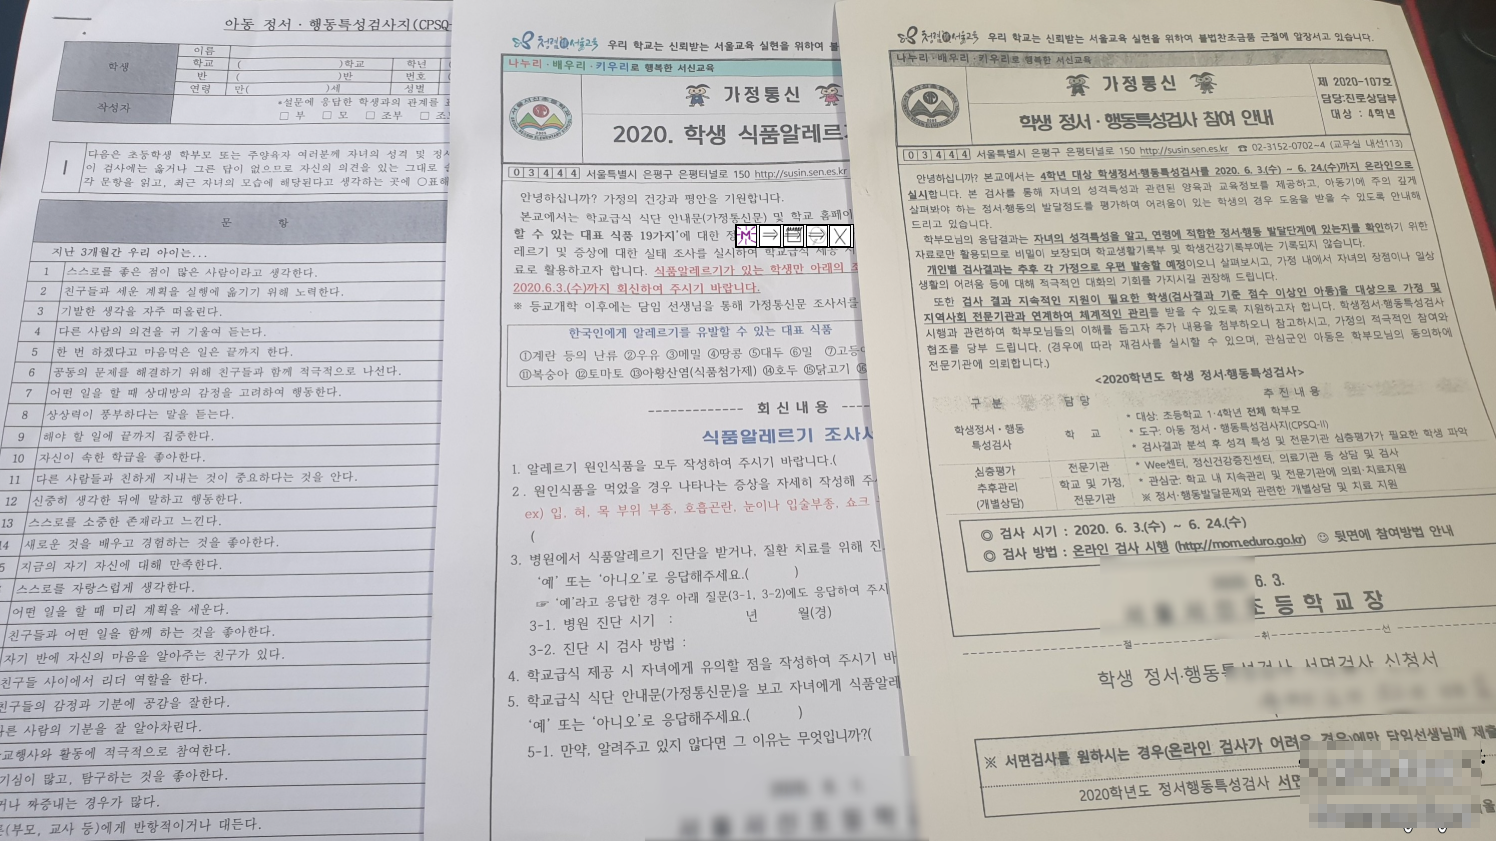 아동 정서·행동특성검사지(CPSQ-
학생
이름
학교 ( )학교 학년
반 ( )반 번호
연령 만( )세 성별
작성자
*설문에 응답한 학생과의 관계를
□ 부 □ 모 □ 조부 □
Ⅰ
다음은 초등학생 학부모 또는 주양육자 여러분께 자녀의 성격 및
이 검사에는 옳거나 그른 답이 없으므로 자신의 의견을 있는 그대로
각 문항을 읽고, 최근 자녀의 모습에 해당된다고 생각하는 곳에 ○표해
문 항
지난 3개월간 우리 아이는...
1 스스로를 좋은 점이 많은 사람이라고 생각한다.
2 친구들과 세운 계획을 실행에 옮기기 위해 노력한다.
3 기발한 생각을 자주 떠올린다.
4 다른 사람의 의견을 귀 기울여 듣는다.
5 한 번 하겠다고 마음먹은 일은 끝까지 한다.
6 공동의 문제를 해결하기 위해 친구들과 함께 적극적으로 나선다.
7 어떤 일을 할 때 상대방의 감정을 고려하여 행동한다.
8 상상력이 풍부하다는 말을 듣는다.
9 해야 할 일에 끝까지 집중한다.
10 자신이 속한 학급을 좋아한다.
11 다른 사람들과 친하게 지내는 것이 중요하다는 것을 안다.
12 신중히 생각한 뒤에 말하고 행동한다.
13 스스로를 소중한 존재라고 느낀다.
14 새로운 것을 배우고 경험하는 것을 좋아한다.
5 지금의 자기 자신에 대해 만족한다.
스스로를 자랑스럽게 생각한다.
어떤 일을 할 때 미리 계획을 세운다.
친구들과 어떤 일을 함께 하는 것을 좋아한다.
자기 반에 자신의 마음을 알아주는 친구가 있다.
친구들 사이에서 리더 역할을 한다.
친구들의 감정과 기분에 공감을 잘한다.
른 사람의 기분을 잘 알아차린다.
교행사와 활동에 적극적으로 참여한다.
기심이 많고, 탐구하는 것을 좋아한다.
거나 짜증내는 경우가 많다.
른(부모, 교사 등)에게 반항적이거나 대든다.
청렴 서울교육 우리 학교는 신뢰받는 서울교육 실현을 위하여
나누리·배우리·키우리로 행복한 서신교육
가정통신
2020. 학생 식품알레르기
03444 서울특별시 은평구 은평터널로 150 http://susin.sen.es.kr
안녕하십니까? 가정의 건강과 평안을 기원합니다.
본교에서는 학교급식 식단 안내문(가정통신문) 및 학교 홈페이
할 수 있는 대표 식품 19가지'에 대한
레르기 및 증상에 대한 실태 조사를 실시하여 학교급식 제공 시
료로 활용하고자 합니다. 식품알레르기가 있는 학생만 아래의
2020.6.3.(수)까지 회신하여 주시기 바랍니다.
※ 등교개학 이후에는 담임 선생님을 통해 가정통신문 조사서를
한국인에게 알레르기를 유발할 수 있는 대표 식품
①계란 등의 난류 ②우유 ③메밀 ④땅콩 ⑤대두 ⑥밀 ⑦고등어
⑪복숭아 ⑫토마토 ⑬아황산염(식품첨가제) ⑭호두 ⑮닭고기
회 신 내 용
식품알레르기 조사서
1. 알레르기 원인식품을 모두 작성하여 주시기 바랍니다.(
2. 원인식품을 먹었을 경우 나타나는 증상을 자세히 작성해
ex) 입, 혀, 목 부위 부종, 호흡곤란, 눈이나 입술부종, 쇼크
(
3. 병원에서 식품알레르기 진단을 받거나, 질환 치료를 위해 진
'예' 또는 '아니오'로 응답해주세요.( )
☞ '예'라고 응답한 경우 아래 질문(3-1, 3-2)에도 응답하여 주시
3-1. 병원 진단 시기 : 년 월(경)
3-2. 진단 시 검사 방법 :
4. 학교급식 제공 시 자녀에게 유의할 점을 작성하여 주시기 바
5. 학교급식 식단 안내문(가정통신문)을 보고 자녀에게 식품알레
'예' 또는 '아니오'로 응답해주세요.( )
5-1. 만약, 알려주고 있지 않다면 그 이유는 무엇입니까?(
청렴 서울교육 우리 학교는 신뢰받는 서울교육 실현을 위하여 불법찬조금품 근절에 앞장서고 있습니다.
나누리·배우리·키우리로 행복한 서신교육
가정통신
학생 정서·행동특성검사 참여 안내
제 2020-107호
담당:진로상담부
대상 : 4학년
03444 서울특별시 은평구 은평터널로 150 http://susin.sen.es.kr ☎ 02-3152-0702~4 (교무실 내선113)
안녕하십니까? 본교에서는 4학년 대상 학생정서·행동특성검사를 2020. 6. 3.(수) ~ 6. 24.(수)까지 온라인으로
실시합니다. 본 검사를 통해 자녀의 성격특성과 관련된 양육과 교육정보를 제공하고, 아동기에 주의 깊게
살펴봐야 하는 정서·행동의 발달정도를 평가하여 어려움이 있는 학생의 경우 도움을 받을 수 있도록 안내해
드리고 있습니다.
학부모님의 응답결과는 자녀의 성격특성을 알고, 연령에 적합한 정서·행동 발달단계에 있는지를 확인하기 위한
자료로만 활용되므로 비밀이 보장되며 학교생활기록부 및 학생건강기록부에는 기록되지 않습니다.
개인별 검사결과는 추후 각 가정으로 우편 발송할 예정이오니 살펴보시고, 가정 내에서 자녀의 장점이나 일상
생활의 어려움 등에 대해 적극적인 대화의 기회를 가지시길 권장해 드립니다.
또한 검사 결과 지속적인 지원이 필요한 학생(검사결과 기준 점수 이상인 아동)을 대상으로 가정 및
지역사회 전문기관과 연계하여 체계적인 관리를 받을 수 있도록 지원하고자 합니다. 학생정서·행동특성검사
시행과 관련하여 학부모님들의 이해를 돕고자 추가 내용을 첨부하오니 참고하시고, 가정의 적극적인 참여와
협조를 당부 드립니다. (경우에 따라 재검사를 실시할 수 있으며, 관심군인 아동은 학부모님의 동의하에
전문기관에 의뢰합니다.)
<2020학년도 학생 정서·행동특성검사>
구 분 담 당 추 진 내 용
학생정서·행동
특성검사
학 교
* 대상: 초등학교 1·4학년 전체 학부모
* 도구: 아동 정서·행동특성검사지(CPSQ-Ⅱ)
* 검사결과 분석 후 성격 특성 및 전문기관 심층평가가 필요한 학생 파악
심층평가 전문기관 * Wee센터, 정신건강증진센터, 의료기관 등 상담 및 검사
추후관리
(개별상담)
학교 및 가정,
전문기관
* 관심군: 학교 내 지속관리 및 전문기관에 의뢰·치료지원
※ 정서·행동발달문제와 관련한 개별상담 및 치료 지원
◎ 검사 시기 : 2020. 6. 3.(수) ~ 6. 24.(수)
◎ 검사 방법 : 온라인 검사 시행 (http://mom.eduro.go.kr) ☺ 뒷면에 참여방법 안내
6. 3.
초등학교장
절 취 선
학생 정서·행동특성검사 서면검사 신청서
※ 서면검사를 원하시는 경우(온라인 검사가 어려운 경우)에만 담임선생님께 제출
2020학년도 정서행동특성검사 서면